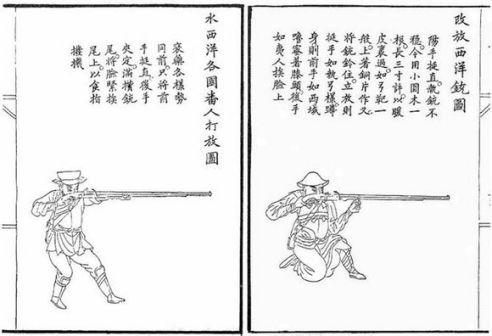 改放西洋銃圖
陽手挺直執銃不
穩今用小圓木一
根長三寸許以軟
皮裹過如弓靶一
般上著銅片作叉
將銃鈐住立放則
挺手如執弓樣蹲
身則前手如西域
嚕密著膝頭後手
如夷人挨臉上
水西洋各國番人打放圖
裝藥各樣勢
同前只將前
手挺直後手
夾定滿攢銃
尾將臉緊挨
尾上以食指
撥機